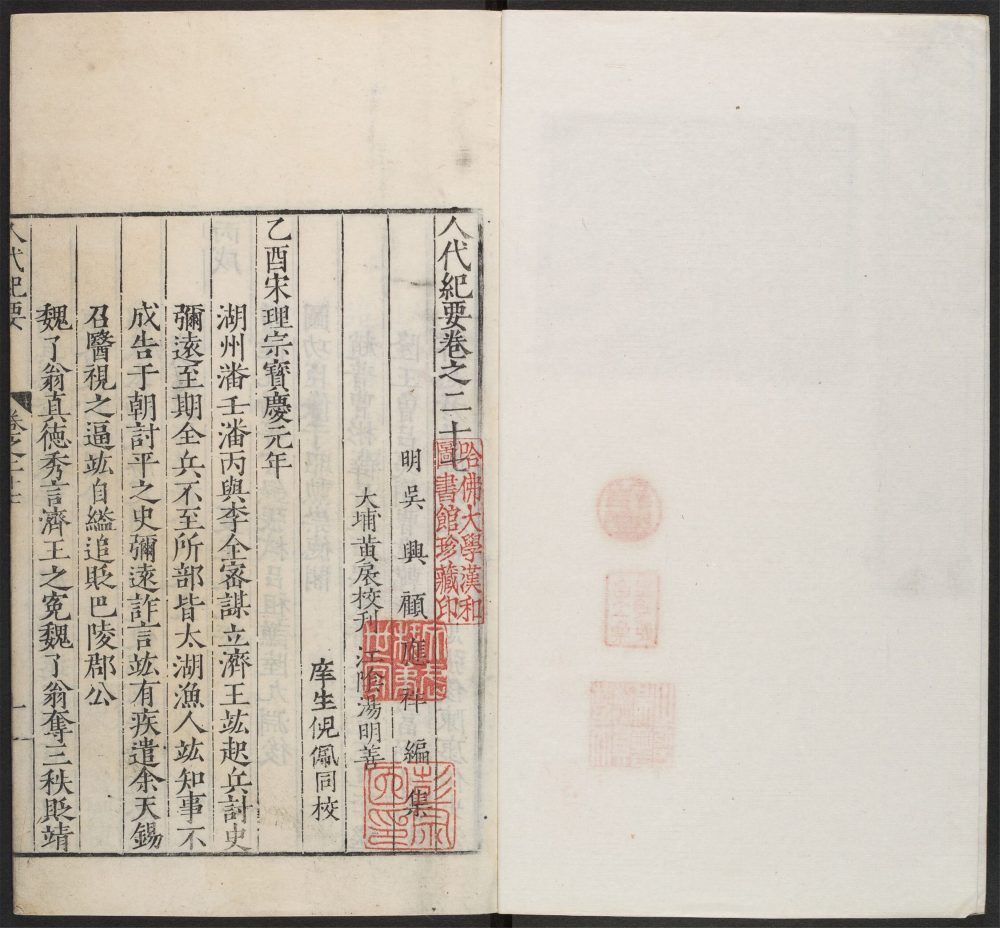 人代紀要卷之二十七
明吳興顧應祥編集
大埔黃扆校刋 江陰湯明善
庠生倪佩同校
乙酉宋理宗寶慶元年
湖州潘壬潘丙與李全密謀立濟王竑起兵討史
彌遠至期全兵不至所部皆太湖漁人竑知事不
成告于朝討平之史彌遠詐言竑有疾遣余天錫
召醫視之逼竑自縊追貶巴陵郡公
魏了翁真德秀言濟王之寃魏了翁奪三秩貶靖
人代紀要
卷之二十七
一
哈佛大學漢和
圖書館珍藏印